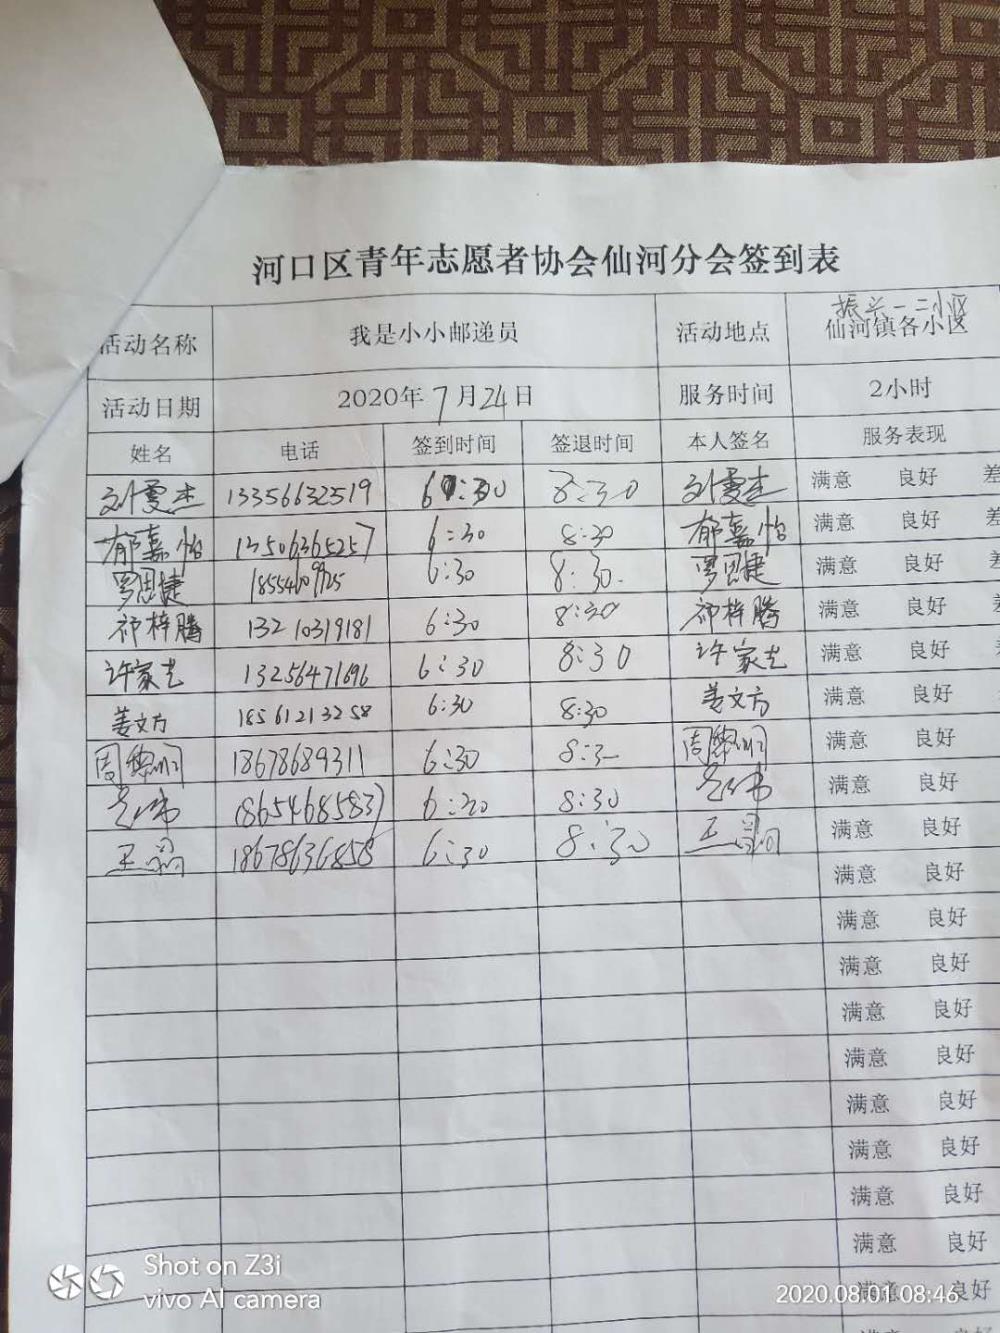 河口区青年志愿者协会仙河分会签到表
活动名称 我是小小邮递员 活动地点 振兴一二小区
仙河镇各小区
活动日期 2020年7月24日 服务时间 2小时
姓名 电话 签到时间 签退时间 本人签名 服务表现
刘雯杰 13356632519 6:30 8:30 刘雯杰 满意 良好 差
郁嘉怡 13506365257 6:30 8:30 郁嘉怡 满意 良好 差
罗思捷 18554609925 6:30 8:30 罗思捷 满意 良好 差
祁梓腾 13210319181 6:30 8:30 祁梓腾 满意 良好 差
许家 13256471696 6:30 8:30 许家 满意 良好
姜文方 18561213258 6:30 8:30 姜文方 满意 良好
周黎明 18678689311 6:30 8:3 周黎明 满意 良好
18654685837 6:30 8:30 满意 良好
王 18678636858 6:30 8:30 王 满意 良好
满意 良好
满意 良好
满意 良好
满意 良好
满意 良好
满意 良好
满意 良好
满意 良好
满意 良好
满意 良好
Shot on Z3i
vivo AI camera
2020.08.01 08:46